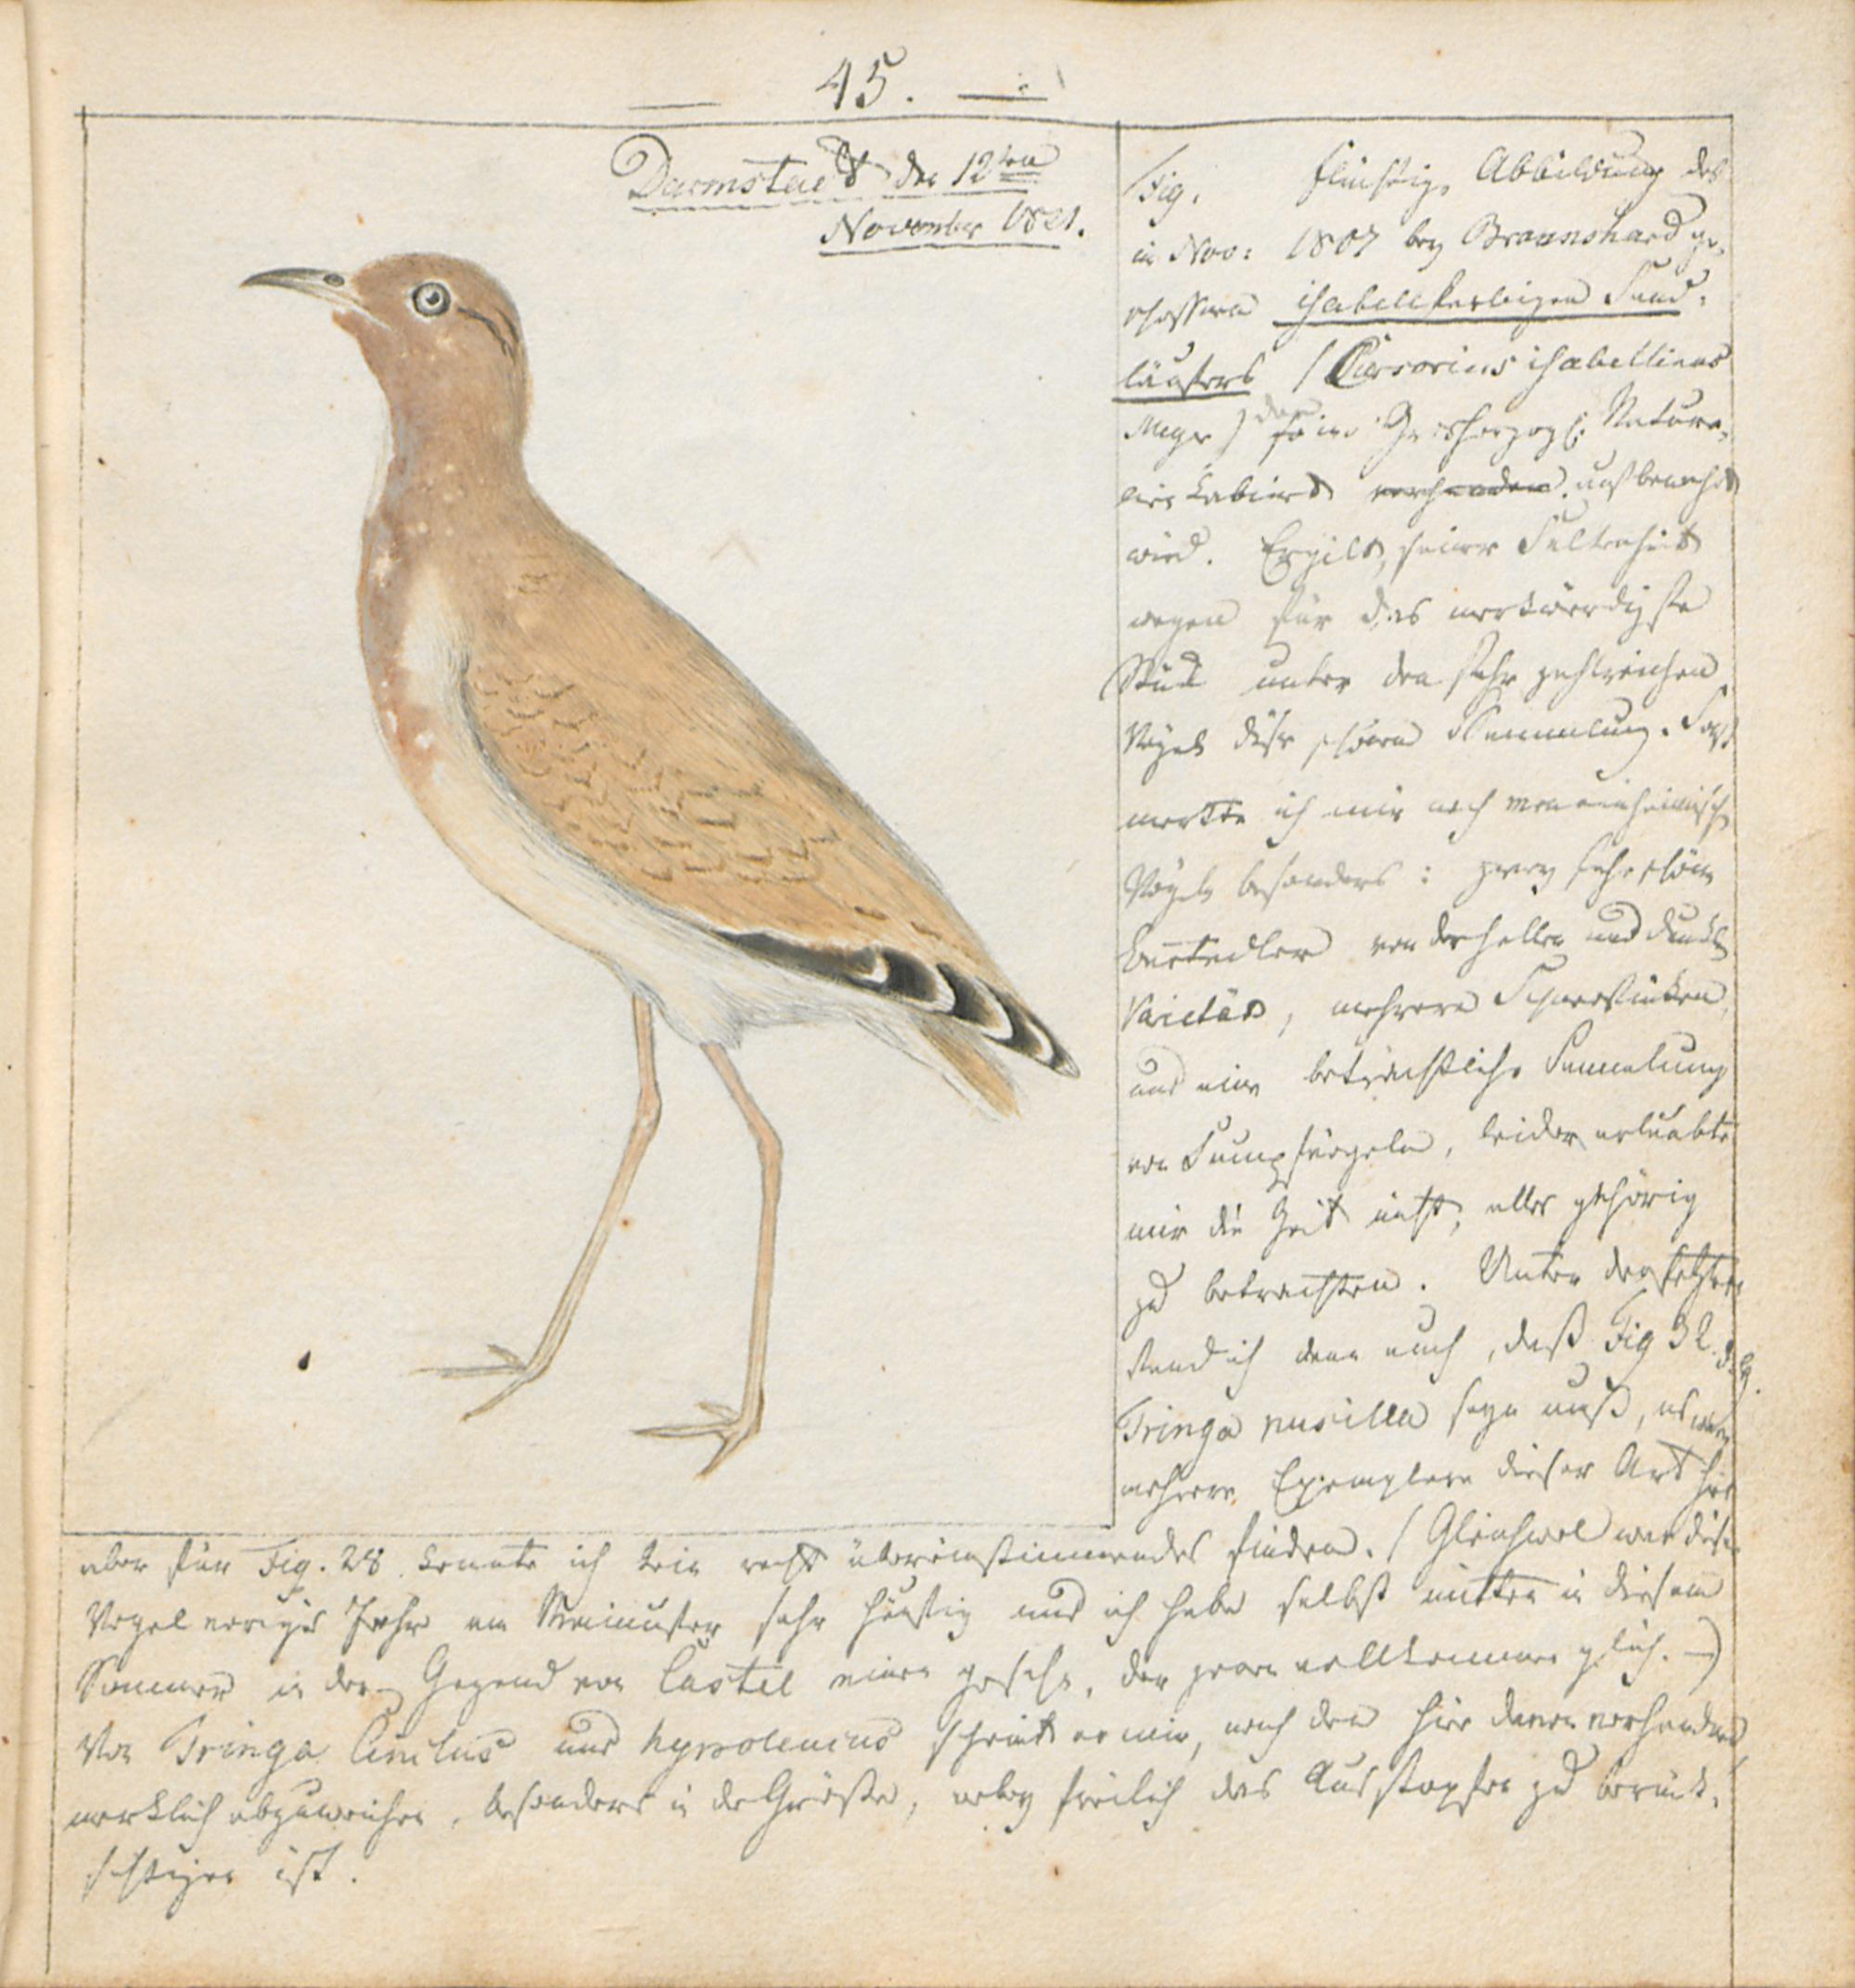 45.
Darmstadt den 12ten
November 1821.
Fig. flüchtige Abbildung des
im Nov: 1807 bey Braunshard ge-
schossenen isabellfarbigen Sand-
läufers (Cursorius isabellinus
Meyer) der im Grosherzogl. Natura-
lien Kabinet vorhanden aufbewahrt
wird. Er gilt, seiner Seltenheit
wegen für das merkwürdigste
Stück unter den sehr zahlreichen
Vögeln dieser schönen Sammlung. Sonst
merkte ich mir noch von einheimisch
Vögeln besonders: zwey sehr schöne
von der hellen und dunkl
Varietät, mehrere Schneefinken
und eine beträchtliche Sammlung
von Sumpfvögeln, leider erlaubte
mir die Zeit nicht, alles gehörig
zu betrachten. Unter den letztern
fand ich denn auch, daß Fig 32. d. 9.
Tringa pusilla seyn muß, es waren
mehrere Exemplare dieser Art hier
aber für Fig. 28. konnte ich kein recht übereinstimmendes finden. (Gleichwol war dieser
Vogel voriges Jahr am Mainufer sehr häufig und ich habe selbst mitten in diesem
Sommer in der Gegend von Castel einen gesehn, der jenem vollkommen glich. —)
Von Tringa Cinclus und hypoleucus scheint er mir, nach den hier davon vorhandnen,
merklich abzuweichen, besonders in der Größe, wobey freilich das Ausstopfen zu berück-
sichtigen ist.